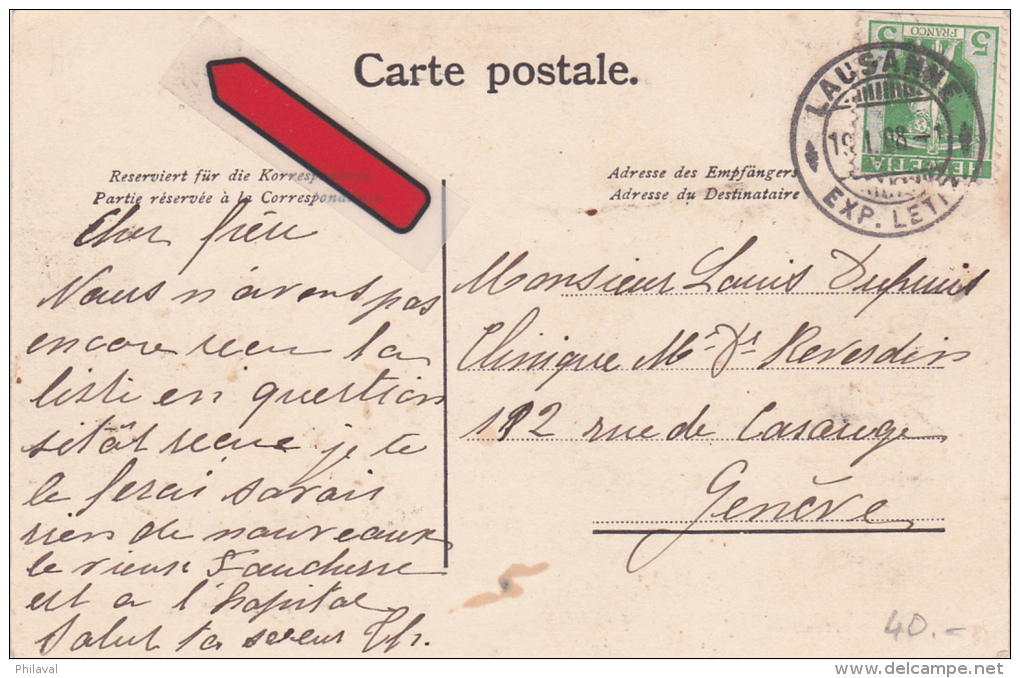 Carte postale.
Reserviert für die Korrespondenz
Partie réservée à la Correspondance
Adresse des Empfängers
Adresse du Destinataire
5 5
FRANCO
HELVETIA
LAUSANNE
19.I.08.-1
EXP. LETT.
Cher frère
Nous n'avons pas
encore recu la
liste en question
sitôt recue je te
le ferai savoir
rien de nouveaux
le vieux Faucherre
est a l'hopital
Salut ta sœur Th.
Monsieur Louis Dupuis
Clinique Mr. Dr Reverdin
112 rue de Carouge
Genève
40.-
Philaval
www.delcampe.net